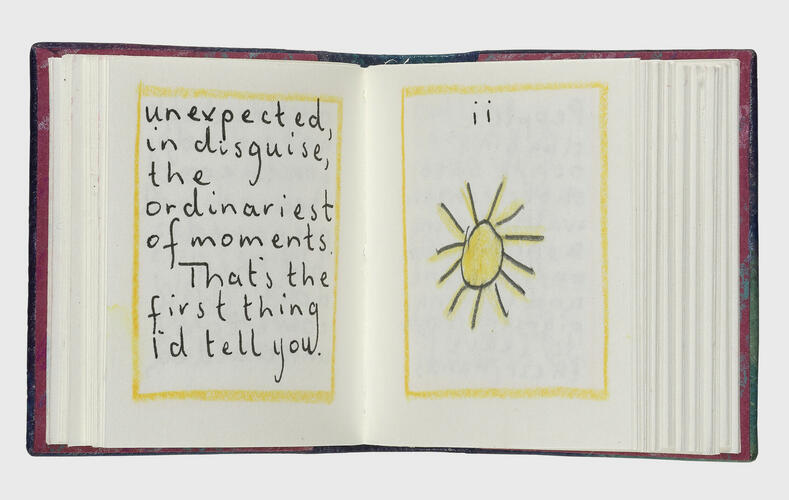 unexpected,
in disguise,
the
ordinariest
of moments.
That's the
first thing
i'd tell you.
ii